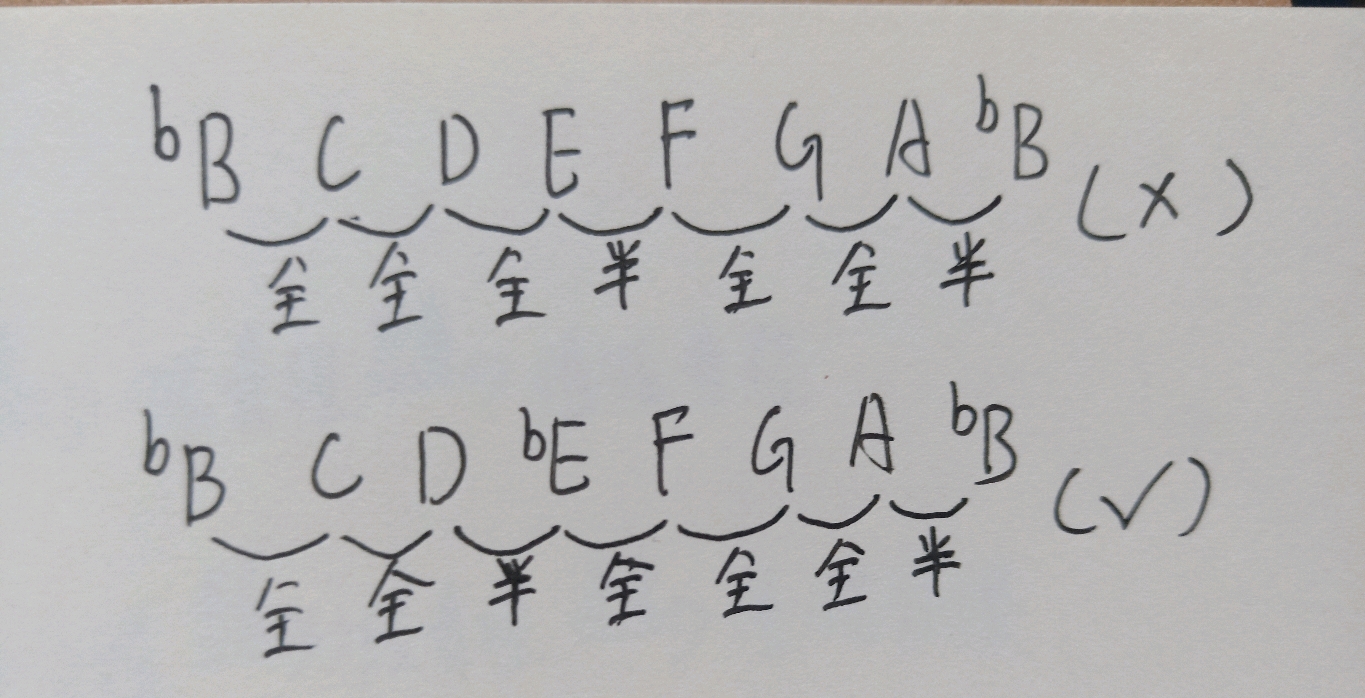 bB C D E F G A bB (×)
全 全 全 半 全 全 半
bB C D bE F G A bB (√)
全 全 半 全 全 全 半